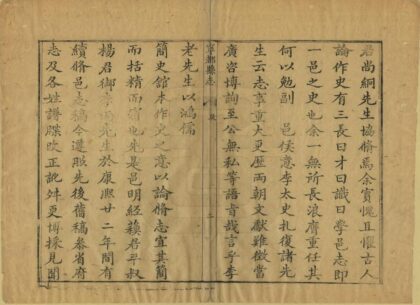 君尚絅先生協脩焉余實愧且懼古人
論作史有三長曰才曰識曰學邑志即
一邑之史也余一無所長浪膺重任其
何以勉副 邑侯意李太史札復諸先
生云志事重大更歷兩朝文獻難徵當
廣咨博詢至公無私等語旨哉言乎李
寧都縣志
二
老先生以鴻儒
簡史館本作史之意以論脩志宜其簡
而括精而
也先是邑明經蘓君平叔
楊君御
先生於康熙廿二年間有
續脩邑志稿今遵照先後舊稿叅省府
志及各姓譜牒改正訛舛更博採見聞